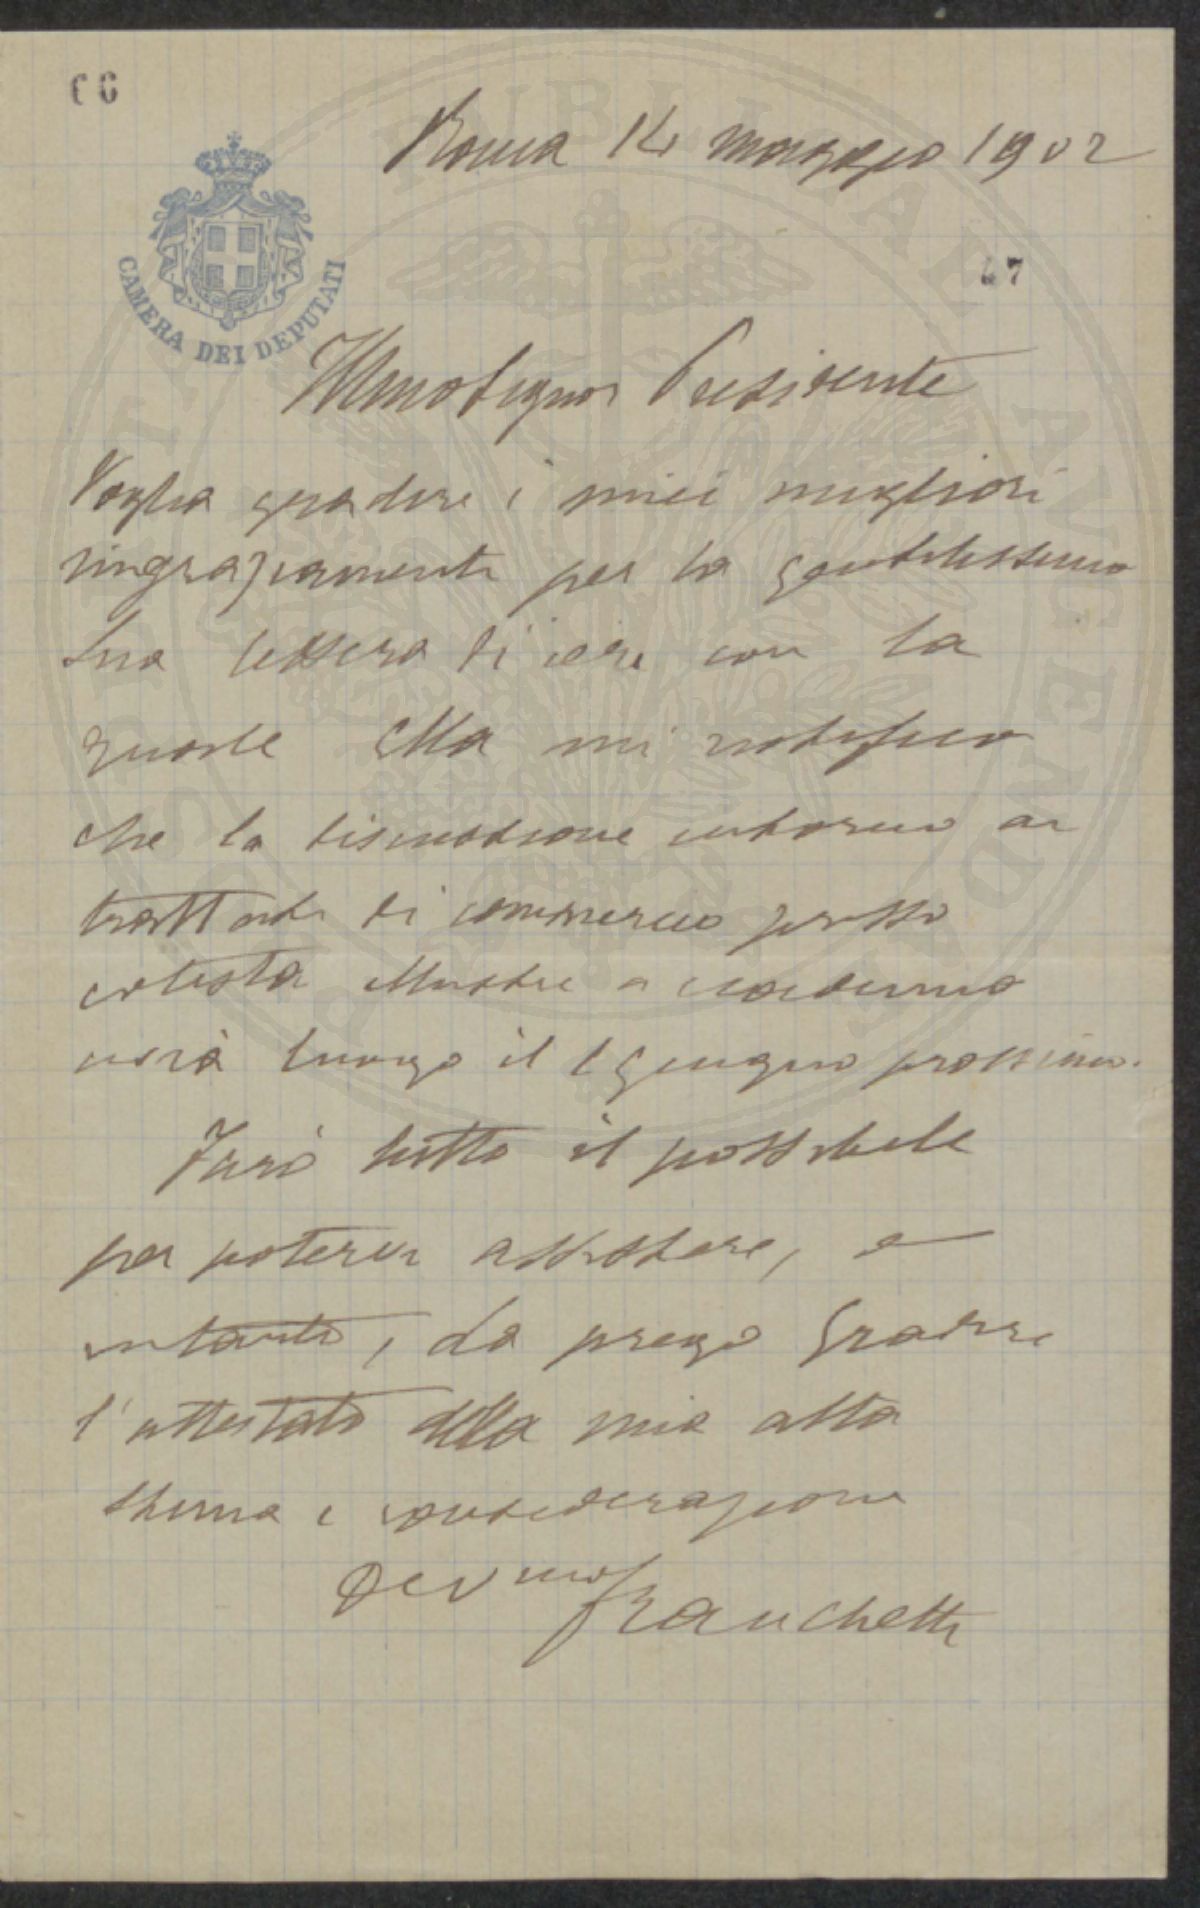 66
Roma 14 maggio 1902
CAMERA DEI DEPUTATI
47
Illmo Signor Presidente
Voglia gradire i miei migliori
ringraziamenti per la gentilissima
Sua lettera di ieri con la
quale Ella mi notifica
che la discussione intorno ai
trattati di commercio presso
cotesta illustre accademia
avrà luogo il 1 giugno prossimo.
Farò tutto il possibile
per potervi assistere, e
intanto, La prego gradire
l'attestato della mia alta
stima e considerazione
Devmo
Franchetti